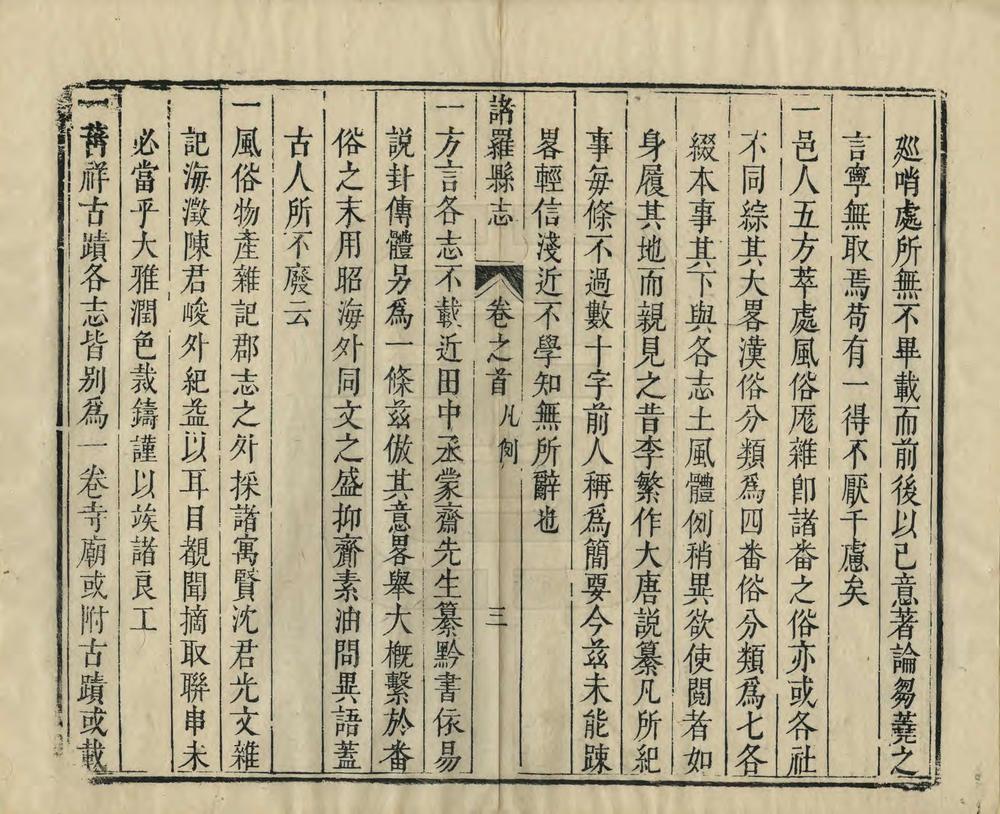 廵哨處所無不畢載而前後以已意著論芻蕘之
言寧無取焉苟有一得不厭千慮矣
一邑人五方萃處風俗厖雜卽諸番之俗亦或各社
不同綜其大畧漢俗分類爲四番俗分類爲七各
綴本事其下與各志土風體例稍異欲使閱者如
身履其地而親見之昔李繁作大唐說纂凡所紀
事每條不過數十字前人稱爲簡要今兹未能踈
畧輕信淺近不學知無所辭也
諸羅縣志 卷之首 凡例 三
一方言各志不載近田中丞蒙齋先生纂黔書依易
說卦傳體另爲一條兹倣其意畧舉大概繫於番
俗之末用昭海外同文之盛抑齎素油問異語蓋
古人所不廢云
一風俗物產雜記郡志之外採諸寓賢沈君光文雜
記海澂陳君峻外紀益以耳目覩聞摘取聯串未
必當乎大雅潤色裁鑄謹以竢諸良工
一菑祥古蹟各志皆别爲一卷寺廟或附古蹟或載